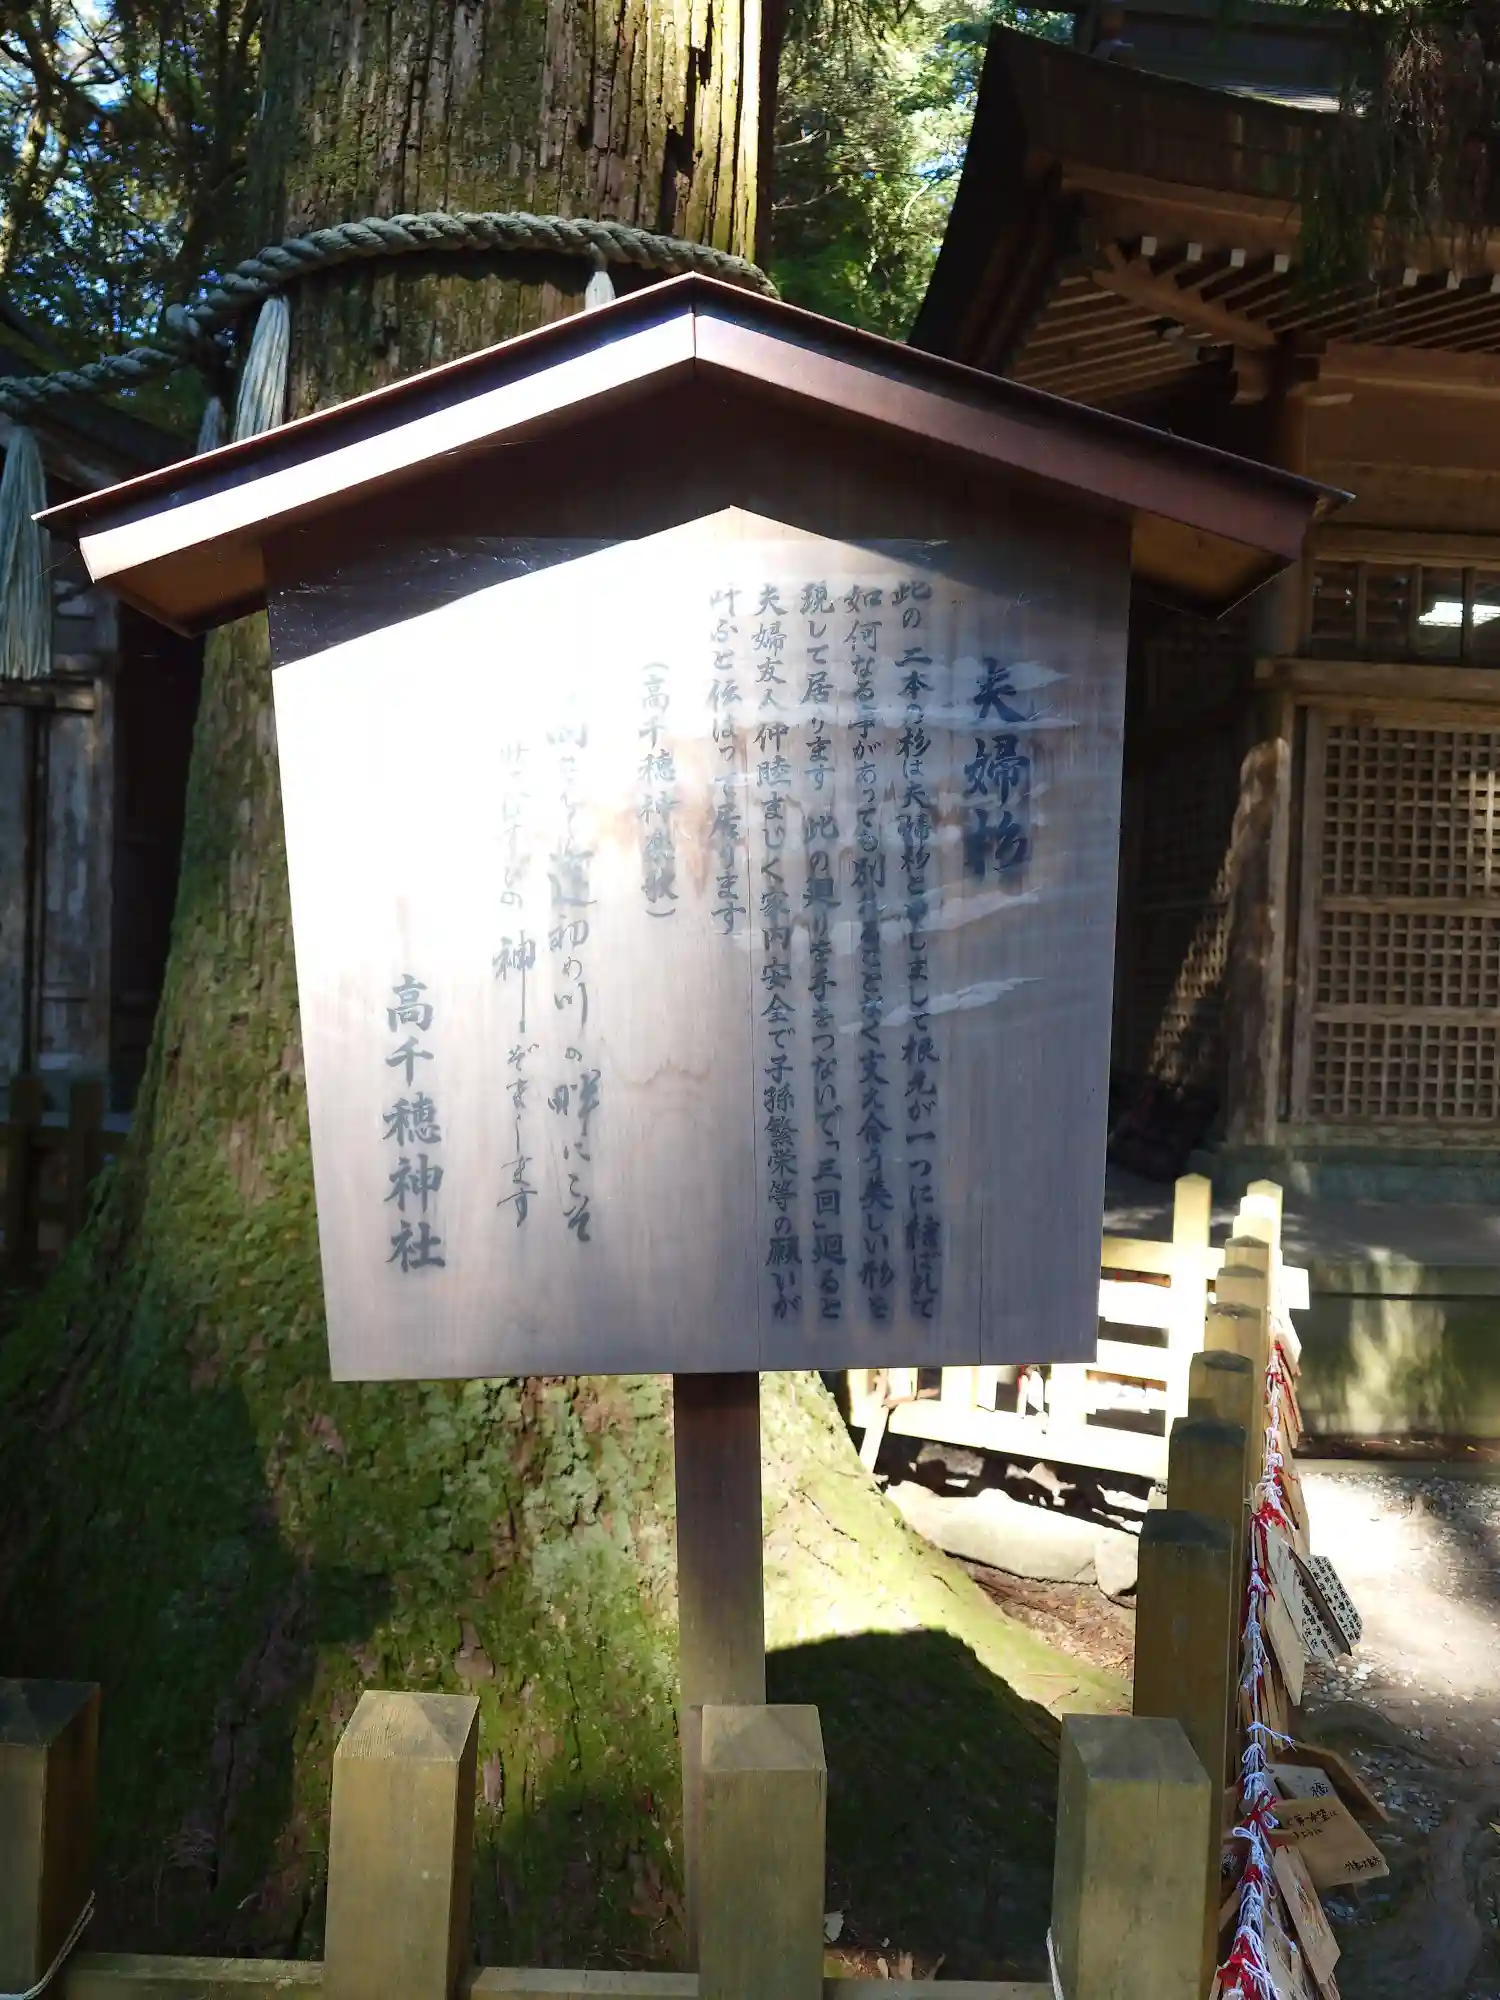 夫婦杉
此の二本の杉は夫婦杉と申しまして根元が一つに結ばれて
如何なる事があっても別れることなく支え合う美しい形を
現して居ります 此の廻りを手をつないで「三回」廻ると
夫婦友人仲睦まじく家内安全で子孫繁栄等の願いが
叶ふと伝はって居ります
(高千穂神楽歌)
逢初め川の畔にこそ
むすびの神まします
高千穂神社